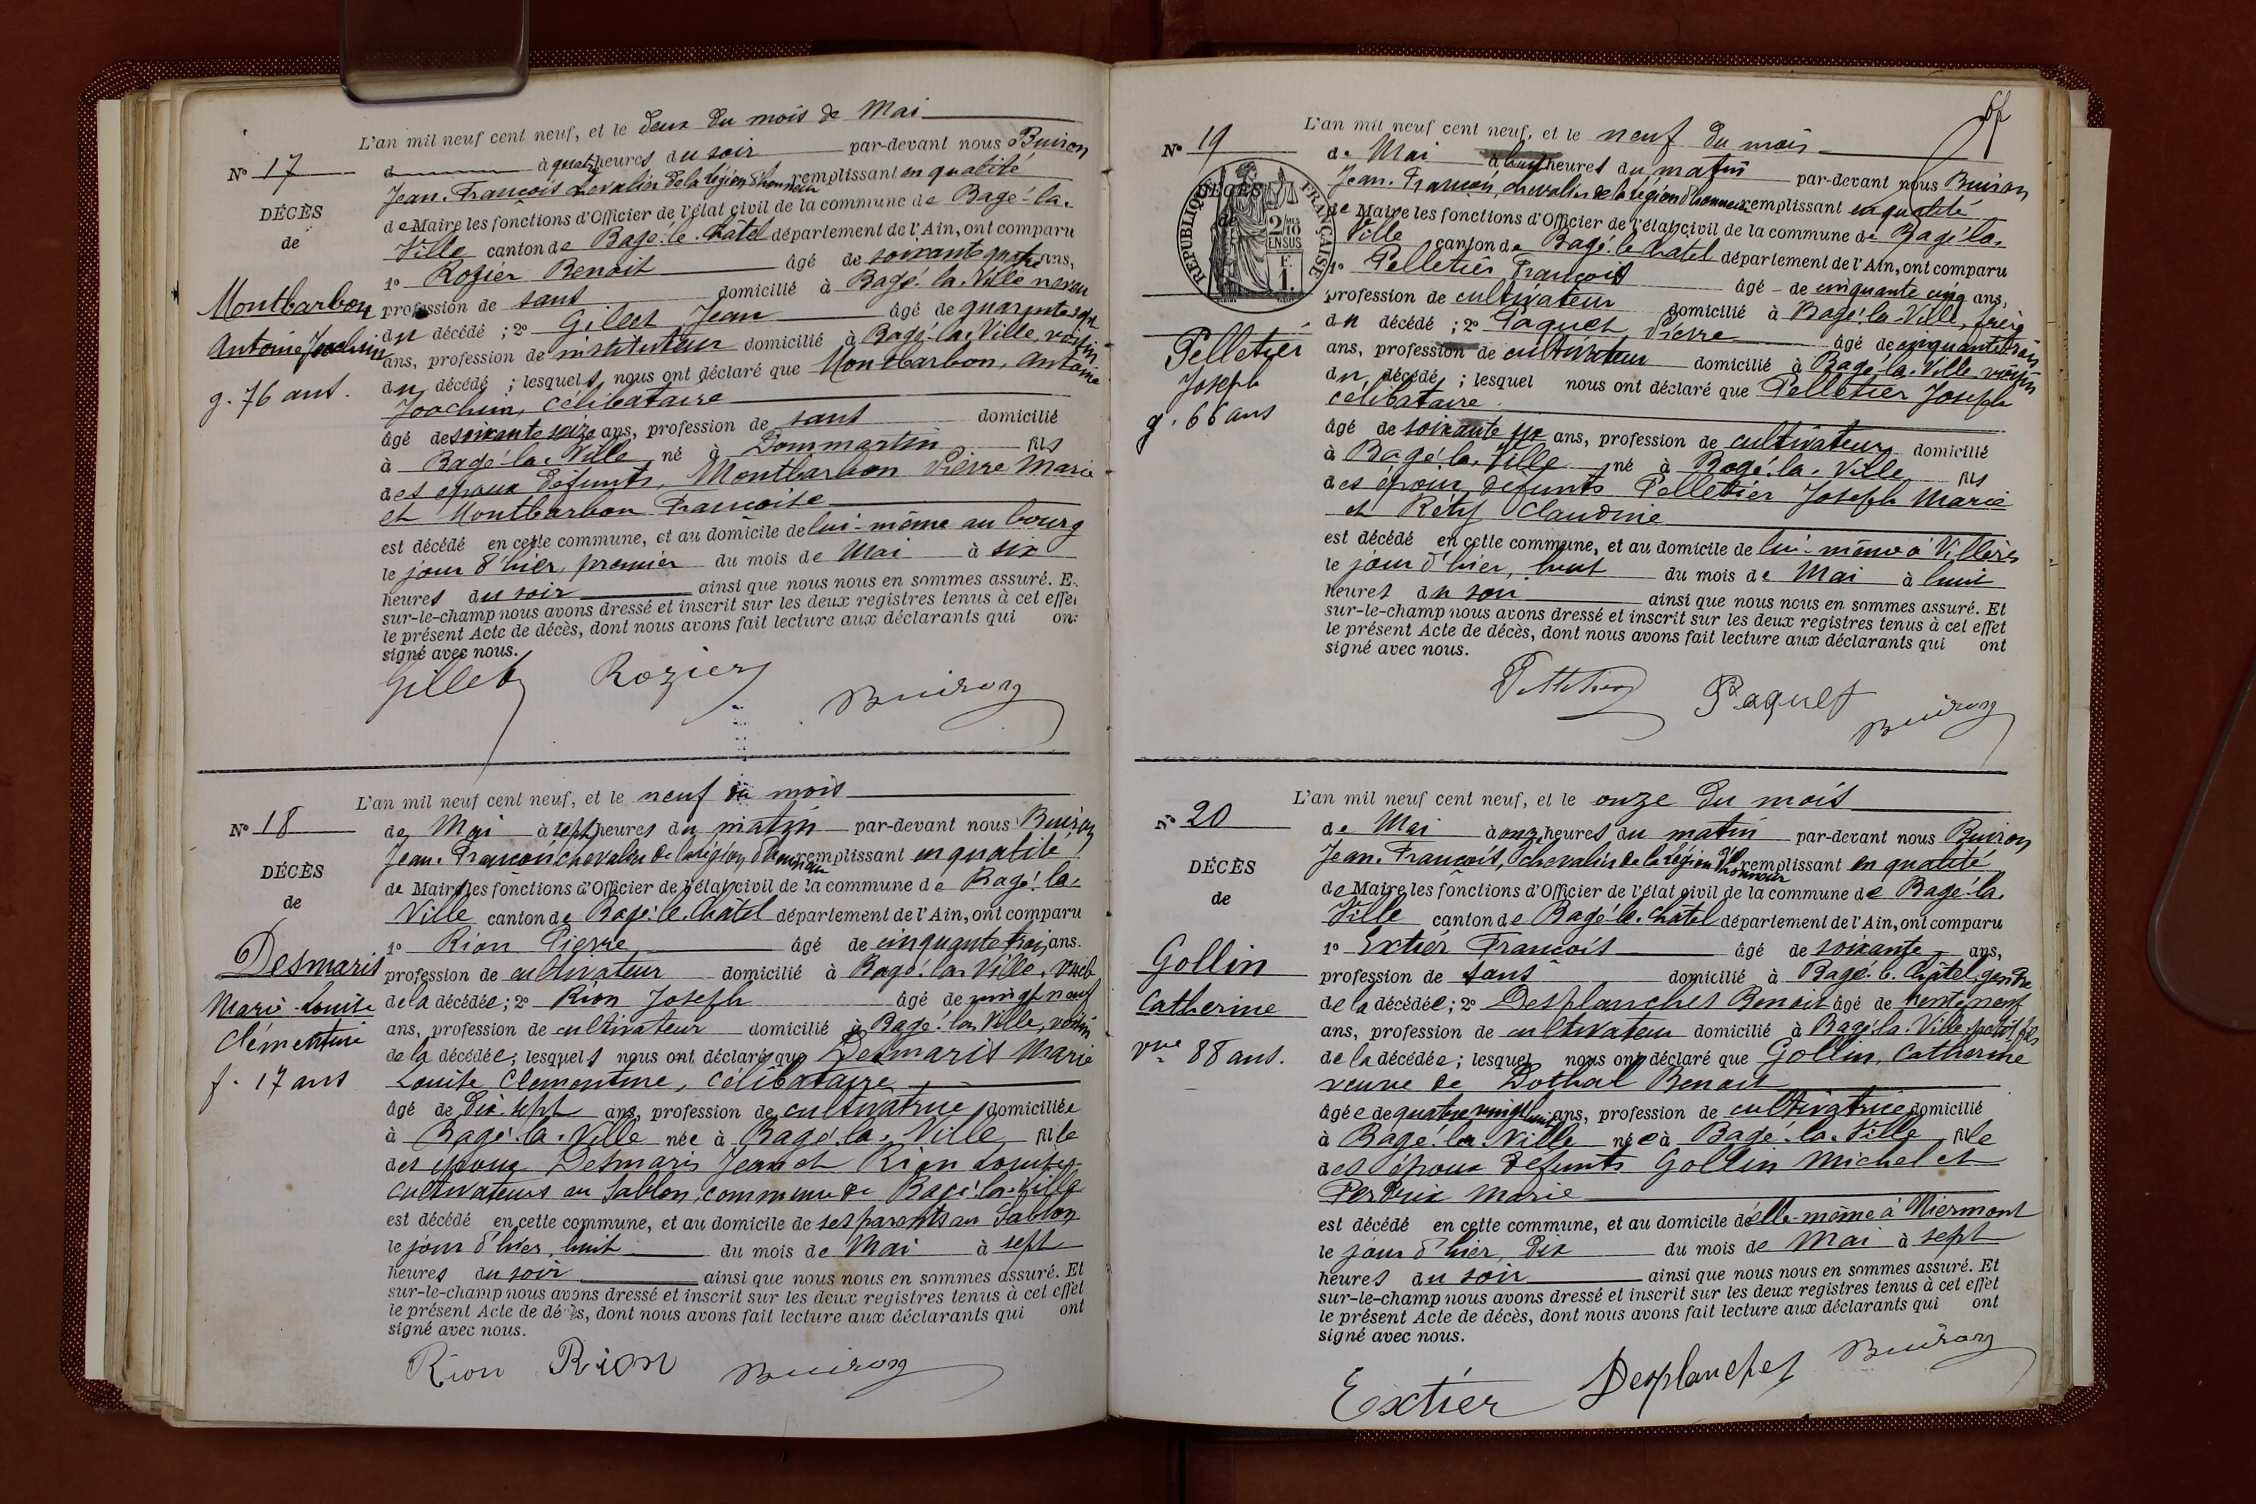 L'an mil neuf cent neuf, et le deux du mois de Mai
N° 17
à quatre heures du soir par-devant nous Buiron
Jean-François chevalier de la légion d'honneur remplissant en qualité
DÉCÈS
de Maire les fonctions d'Officier de l'état civil de la commune de Bagé-la-
de
Ville canton de Bagé-le-Châtel département de l'Ain, ont comparu
1° Rozier Benoit âgé de soixante quatre ans,
Montbarbon
profession de sans domicilié à Bagé-la-Ville neveu
Antoine Joachim
du décédé ; 2° Gillet Jean âgé de quarante sept
ans, profession de instituteur domicilié à Bagé-la-Ville, voisin
g. 76 ans.
du décédé ; lesquels nous ont déclaré que Montbarbon, Antoine
Joachim, célibataire
âgé de soixante seize ans, profession de sans domicilié
à Bagé-la-Ville né à Dommartin fils
des époux défunts, Montbarbon Pierre Marie
et Montbarbon Françoise
est décédé en cette commune, et au domicile de lui-même au bourg
le jour d'hier, premier du mois de Mai à six
heures du soir ainsi que nous nous en sommes assuré. E
sur-le-champ nous avons dressé et inscrit sur les deux registres tenus à cet effet
le présent Acte de décès, dont nous avons fait lecture aux déclarants qui ont
signé avec nous.
Gillet Rozier Buiron
L'an mil neuf cent neuf, et le neuf du mois
N° 18
de Mai à sept heures du matin par-devant nous Buiron
Jean-François chevalier de la légion d'honneur remplissant en qualité
DÉCÈS
de Maire les fonctions d'Officier de l'état civil de la commune de Bagé-la-
de
Ville canton de Bagé-le-Châtel département de l'Ain, ont comparu
1° Rion Pierre âgé de cinquante trois ans.
Desmaris
profession de cultivateur domicilié à Bagé-la-Ville, oncle
Marie-Louise
de la décédée ; 2° Rion Joseph âgé de vingt neuf
Clémentine
ans, profession de cultivateur domicilié à Bagé-la-Ville, voisin
de la décédée ; lesquels nous ont déclaré que Desmaris Marie
f. 17 ans
Louise Clémentine, célibataire
âgé de dix-sept ans, profession de cultivatrice domiciliée
à Bagé-la-Ville née à Bagé-la-Ville fille
des époux Desmaris Jean et Rion Louise,
cultivateurs au Sablon, commune de Bagé-la-Ville
est décédé en cette commune, et au domicile de ses parents au Sablon
le jour d'hier, huit du mois de Mai à sept
heures du soir ainsi que nous nous en sommes assuré. Et
sur-le-champ nous avons dressé et inscrit sur les deux registres tenus à cet effet
le présent Acte de décès, dont nous avons fait lecture aux déclarants qui ont
signé avec nous.
Rion Rion Buiron
L'an mil neuf cent neuf, et le neuf du mois
N° 19
de Mai à huit heures du matin par-devant nous Buiron
Jean-François, chevalier de la légion d'honneur remplissant en qualité
DÉCÈS
de
RÉPUBLIQUE FRANÇAISE
2/10 EN SUS
F. 1.
de Maire les fonctions d'Officier de l'état civil de la commune de Bagé-la-
Ville canton de Bagé-le-Châtel département de l'Ain, ont comparu
1° Pelletier François âgé de cinquante cinq ans,
profession de cultivateur domicilié à Bagé-la-Ville, frère
du décédé ; 2° Paquet Pierre âgé de cinquante trois
Pelletier
ans, profession de cultivateur domicilié à Bagé-la-Ville voisin
Joseph
du décédé ; lesquel nous ont déclaré que Pelletier Joseph
célibataire
g. 66 ans
âgé de soixante six ans, profession de cultivateur domicilié
à Bagé-la-Ville né à Bagé-la-Ville fils
des époux défunts Pelletier Joseph Marie
et Réty Claudine
est décédé en cette commune, et au domicile de lui-même à Villères
le jour d'hier, huit du mois de Mai à huit
heures du soir ainsi que nous nous en sommes assuré. Et
sur-le-champ nous avons dressé et inscrit sur les deux registres tenus à cet effet
le présent Acte de décès, dont nous avons fait lecture aux déclarants qui ont
signé avec nous.
Pelletier Paquet Buiron
L'an mil neuf cent neuf, et le onze du mois
N° 20
de Mai à onze heures du matin par-devant nous Buiron
Jean-François, chevalier de la légion d'honneur remplissant en qualité
DÉCÈS
de Maire les fonctions d'Officier de l'état civil de la commune de Bagé-la-
de
Ville canton de Bagé-le-Châtel département de l'Ain, ont comparu
1° Extier François âgé de soixante ans,
Gollin
profession de sans domicilié à Bagé-le-Châtel, gendre
Catherine
de la décédée ; 2° Desplanches Benoit âgé de trente neuf
ans, profession de cultivateur domicilié à Bagé-la-Ville, petit fils
vve 88 ans.
de la décédée ; lesquel nous ont déclaré que Gollin, Catherine
veuve de Dothal Benoit
âgée de quatre vingt huit ans, profession de cultivatrice domicilié
à Bagé-la-Ville née à Bagé-la-Ville, fille
des époux défunts Gollin Michel et
Perdrix Marie
est décédé en cette commune, et au domicile d'elle-même à Niermont
le jour d'hier, dix du mois de Mai à sept
heures du soir ainsi que nous nous en sommes assuré. Et
sur-le-champ nous avons dressé et inscrit sur les deux registres tenus à cet effet
le présent Acte de décès, dont nous avons fait lecture aux déclarants qui ont
signé avec nous.
Extier Desplanches Buiron